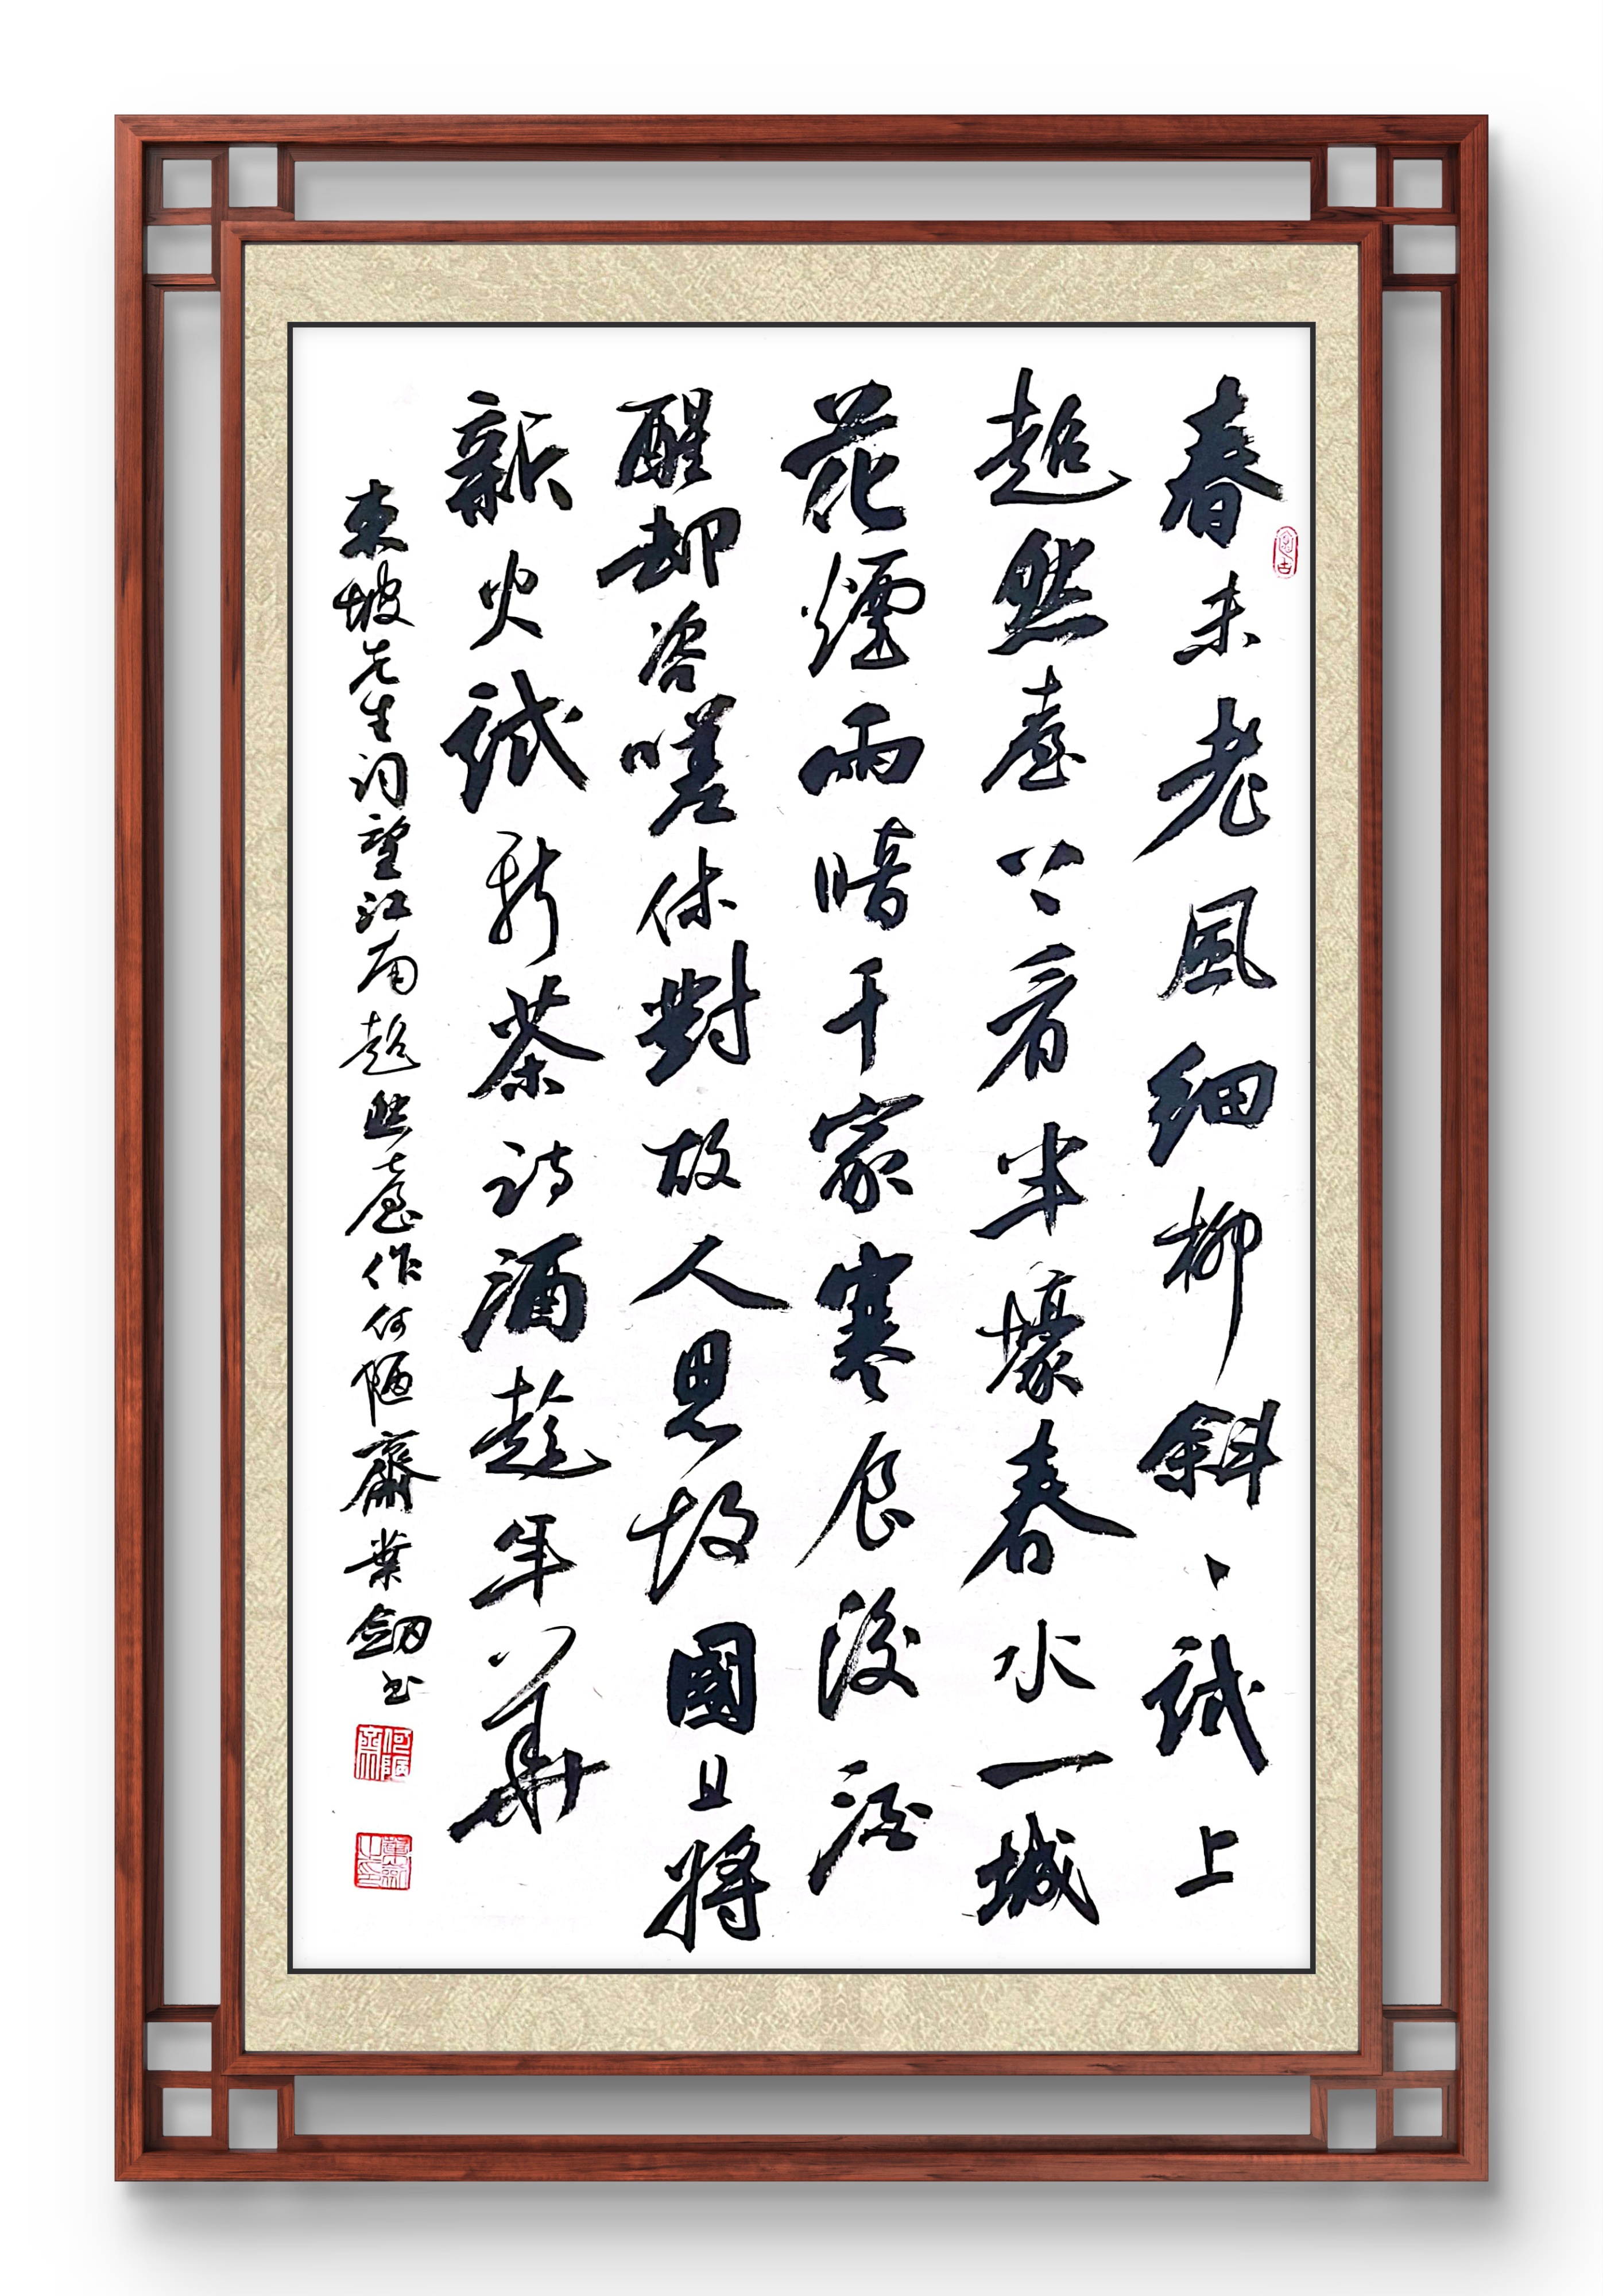 春未老風細柳斜、試上
超然臺上看半壕春水一城
花煙雨暗千家寒食後酒
醒却咨嗟休對故人思故國且將
新火試新茶詩酒趁年華
東坡先生词望江南超然臺作何陋齋葉劒书
何陋齋
葉劍之印